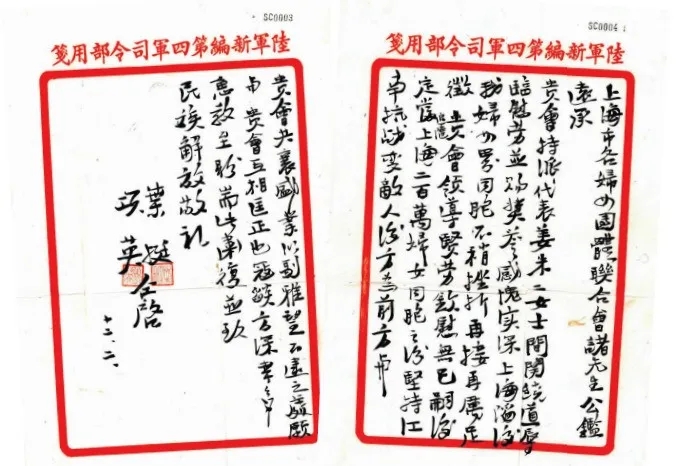 SC0004
陸軍新編第四軍司令部用箋
上海市各婦女團體聯合會諸先生公鑑
遠承
貴會特派代表姜朱二女士間關繞道辱
臨慰勞並賜獎 感愧實深上海淪後
我婦女界同胞不稍挫折再接再厲足
徵 貴會領導賢勞欽慰無已嗣後
定當 上海二百萬婦女同胞之後堅持江
南抗戰變敵人後方為前方與
SC0003
陸軍新編第四軍司令部用箋
貴會共襄盛業以副雅望不遠之
與 貴會互相匡正也 方深
惠教至盼耑此肅復並致
民族解放敬禮
葉挺
項英 仝啓
十二、二、